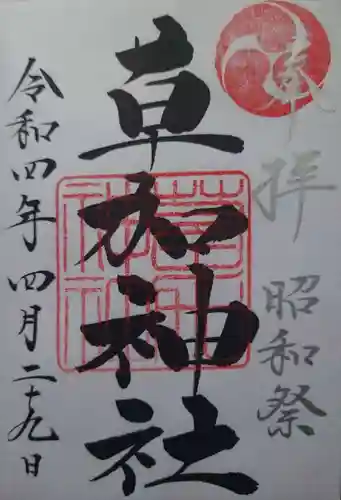 奉拝 昭和祭
草加神社
令和四年四月二十九日
草加神社